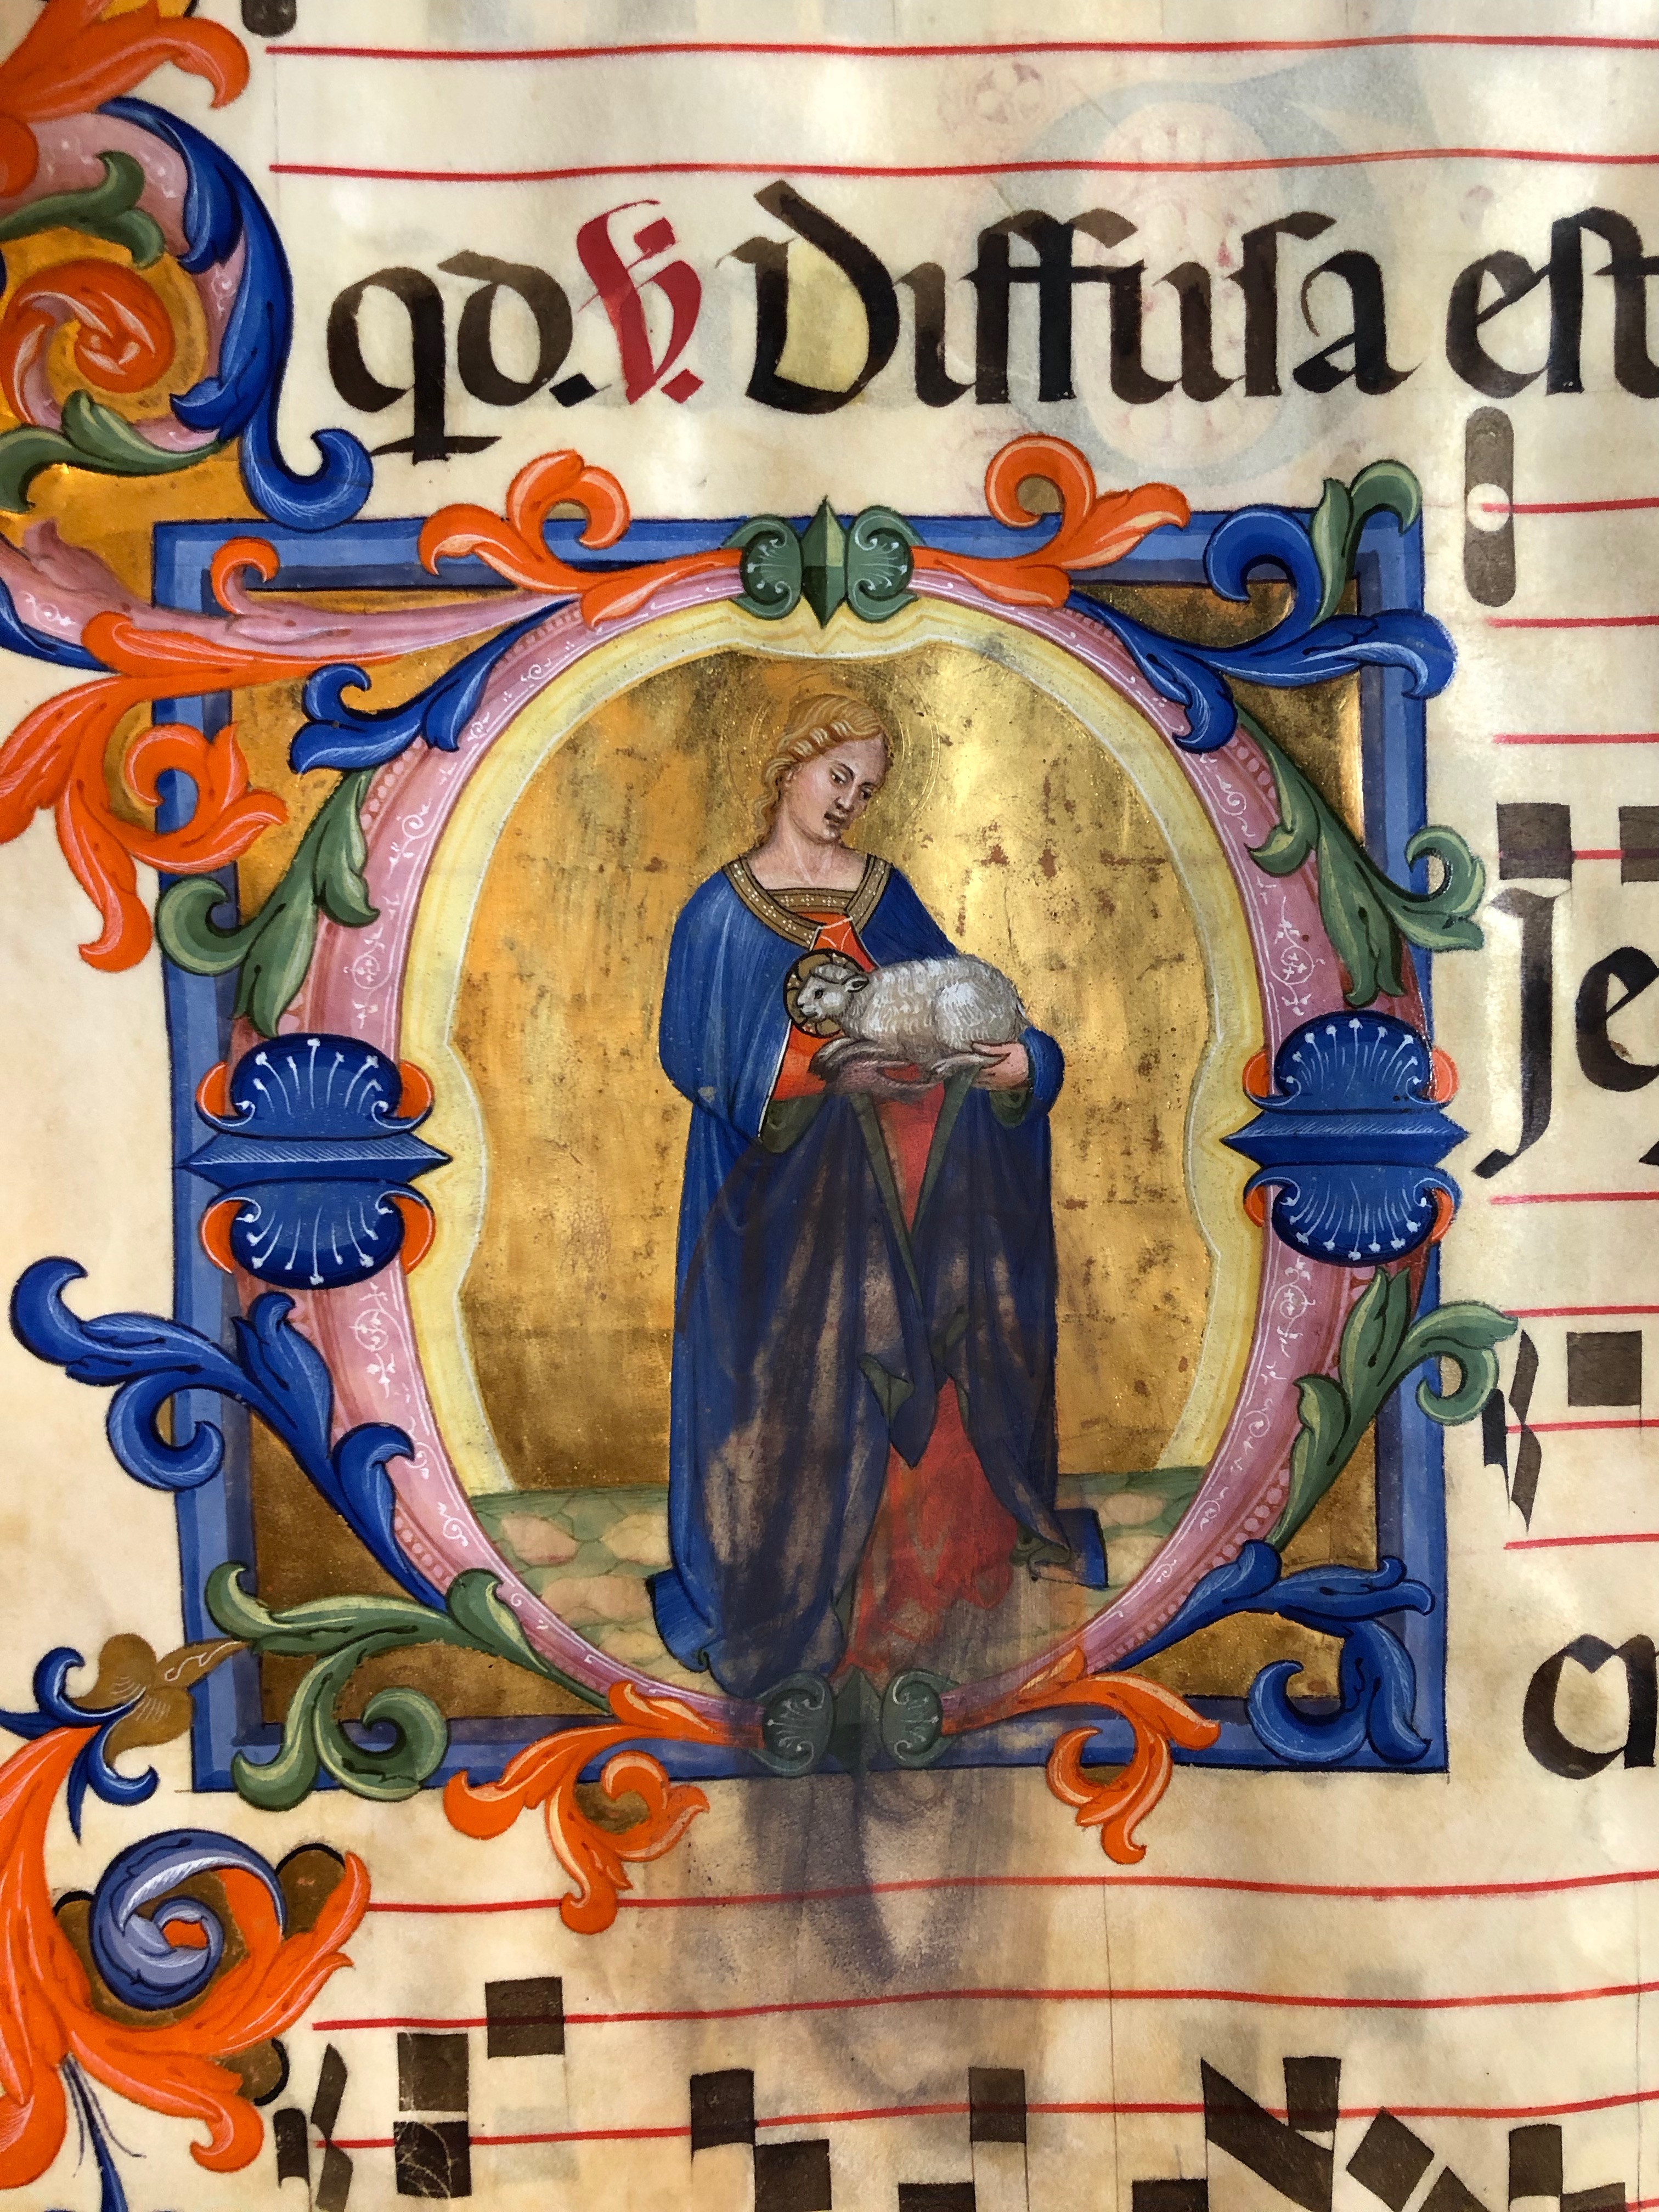 qd. V. Diffusa est
Je
a